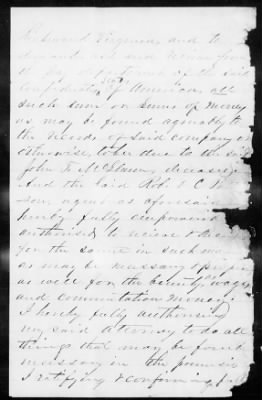 Richmond Virginia, and to
demand, ask and receive from
the pay department of the said
Confederate Sts of America, all
such sum or sums of money
as may be found agreeably to
the records of said company or
otherwise, to be due to the said
John deceased
And the said Robt C
agent as aforesaid
hereby fully empowered
authorised to receive
for the same in such
as may be necessary & proper
as well for the bounty, wages
and commutation money
I hereby fully authorising
my said Attorney to do all
things that may be found
necessary in the premises
& ratifying & confirming